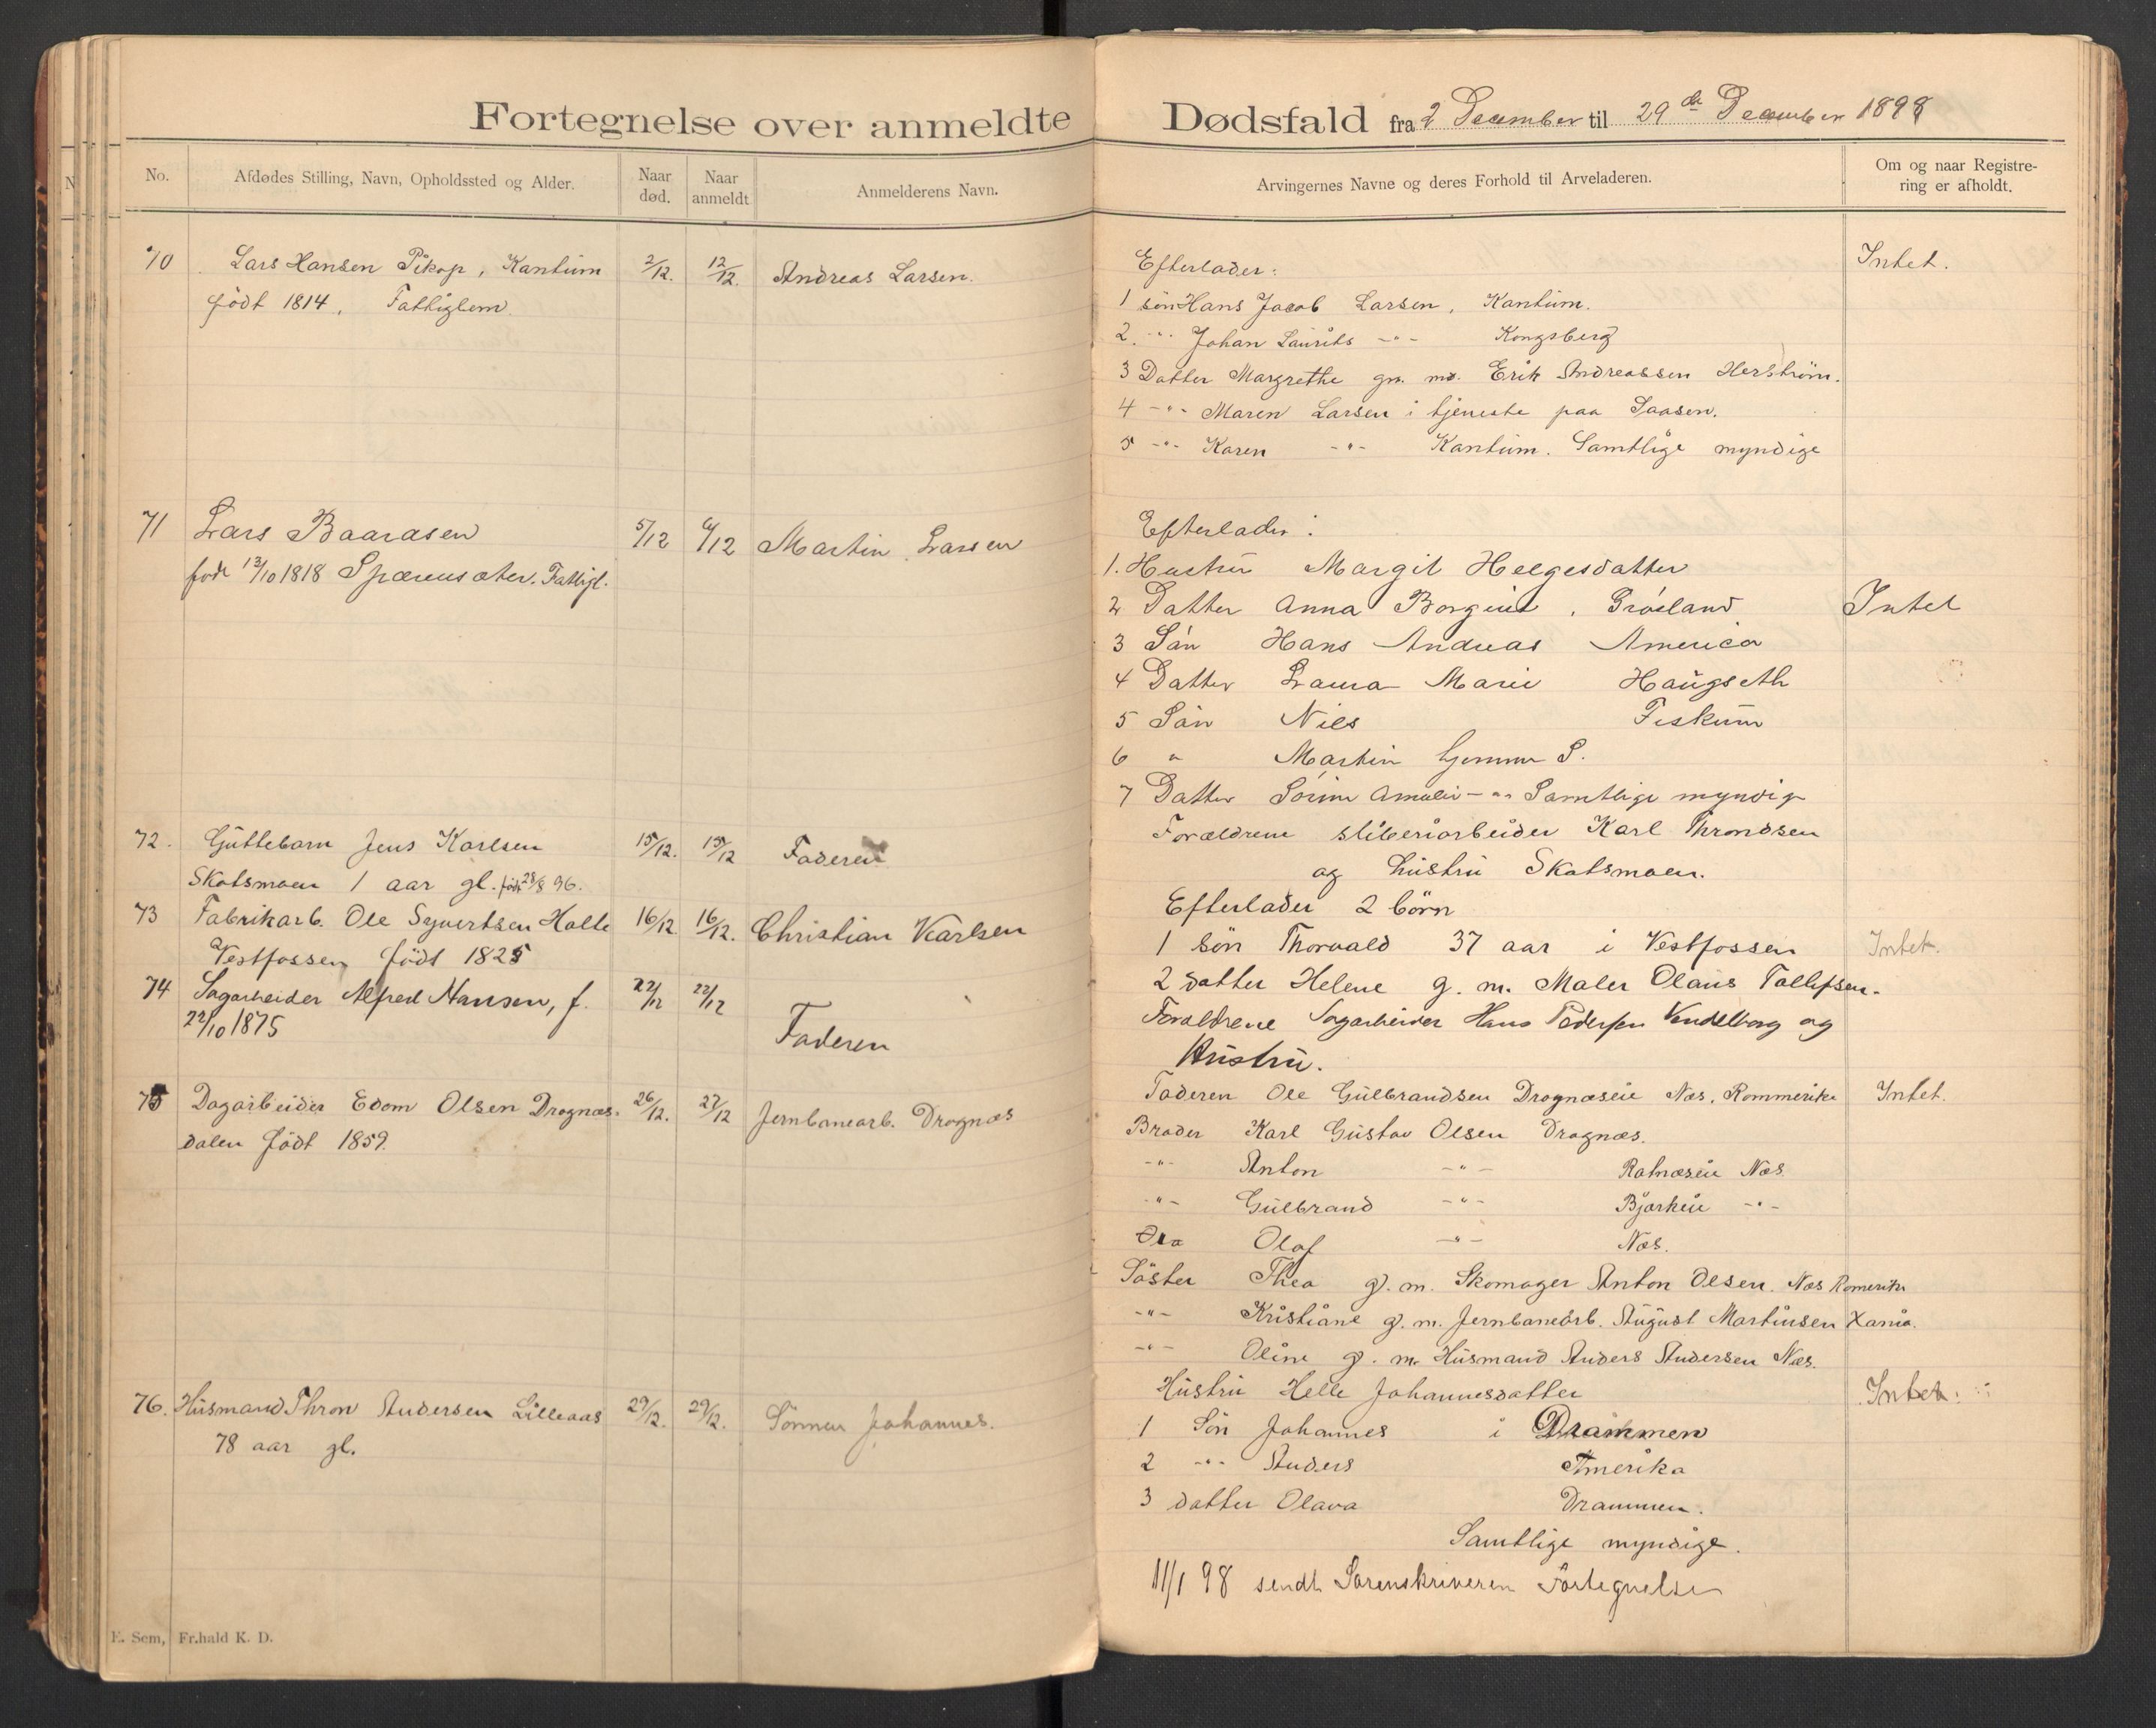 Fortegnelse over anmeldte Dødsfald fra 2 December til 29de December 1898
No.
Afdødes Stilling, Navn, Opholdssted og Alder.
Naar død.
Naar anmeldt
Anmelderens Navn.
Arvingernes Navne og deres Forhold til Arveladeren.
Om og naar Registrering er afholdt.
70 Lars Hansen Pikop, Kantum 2/12. 12/12. Andreas Larsen.
født 1814, Fattiglem
Efterlader: Intet.
1 søn Hans Jacob Larsen, Kantum.
2. -"- Johan Laurits -"- Kongsberg
3 Datter Margrethe gm. md. Erik Andreassen Herstrøm.
4 -"- Maren Larsen i tjeneste paa Saasen.
5 -"- Karen -"- Kantum. Samtlige myndige
71 Lars Baarasen 5/12 6/12 Martin Larsen
født 13/10 1818 Spærensæter. Fattigl.
Efterlader:
1. Hustru Margit Helgesdatter
2 Datter Anna Borgine, Grøsland Intet
3 Søn Hans Andreas America
4 Datter Laura Marie Haugseth
5 Søn Nils Fiskum
6 " Martin hjemme S.
7 Datter Sørine Amalie -"- Samtlige myndige
72. Guttebarn Jens Karlsen 15/12. 15/12 Faderen
Skotsmoen 1 aar gl. født 28/8 96.
Forældrene sliberiarbeider Karl Throndsen
og hustru Skotsmoen.
73 Fabrikarb. Ole Syvertsen Holte 16/12 16/12. Christian Karlsen
Vestfossen født 1825
Efterlader 2 børn
1 søn Thorvald 37 aar i Vestfossen Intet.
2 datter Helene g. m. Maler Olaus Tollefsen.
74 Sagarbeider Alfred Hansen, f. 22/12 22/12
22/10 1875 Faderen
Forældrene Sagarbeider Hans Pedersen Vendelborg og
Hustru.
75 Dagarbeider Edom Olsen Dragnæs- 26/12. 27/12 Jernbanearb. Dragnæs
dalen født 1859.
Faderen Ole Gulbrandsen Dragnæseie Næs, Rommerike Intet.
Broder Karl Gustav Olsen Dragnæs.
-"- Anton -"- Ratnæseie Næs
-"- Gulbrand -"- Bjørkeie -"-
Olaf -"- Næs.
Søster Thea g. m. Skomager Anton Olsen. Næs Romerike
-"- Kristiane g. m. Jernbanearb. August Martinsen Xania.
-"- Oline g. m. Husmand Anders Andersen Næs.
76. Husmand Thron Andersen Lilleaas 29/12. 29/12. Sønnen Johannes.
78 aar gl.
Hustru Helle Johannesdatter Intet.
1 Søn Johannes i Drammen
2 -"- Anders Amerika
3 datter Olava Drammen.
Samtlige myndige.
11/1 98 sendt Sorenskriveren Fortegnelse
E. Sem, Fr.hald K. D.